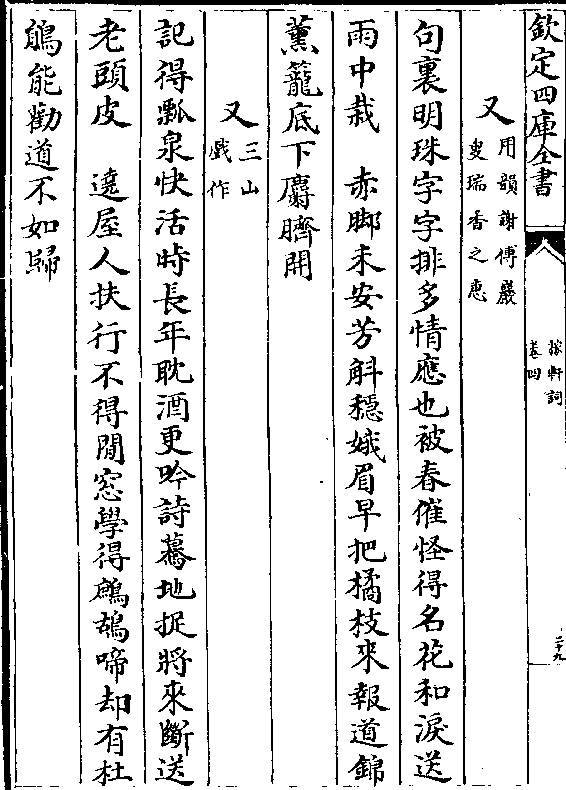 欽定四庫全書
稼軒詞
卷四
二十九
又
用韻謝傅巖
叟瑞香之惠
句裏明珠字字排多情應也被春催怪得名花和淚送
雨中栽　赤脚未安芳斛穩娥眉早把橘枝來報道錦
薰籠底下麝臍開
又
三山
戲作
記得瓢泉快活時長年耽酒更吟詩驀地捉將來斷送
老頭皮　遶屋人扶行不得閒窓學得鷓鴣啼却有杜
鵑能勸道不如歸